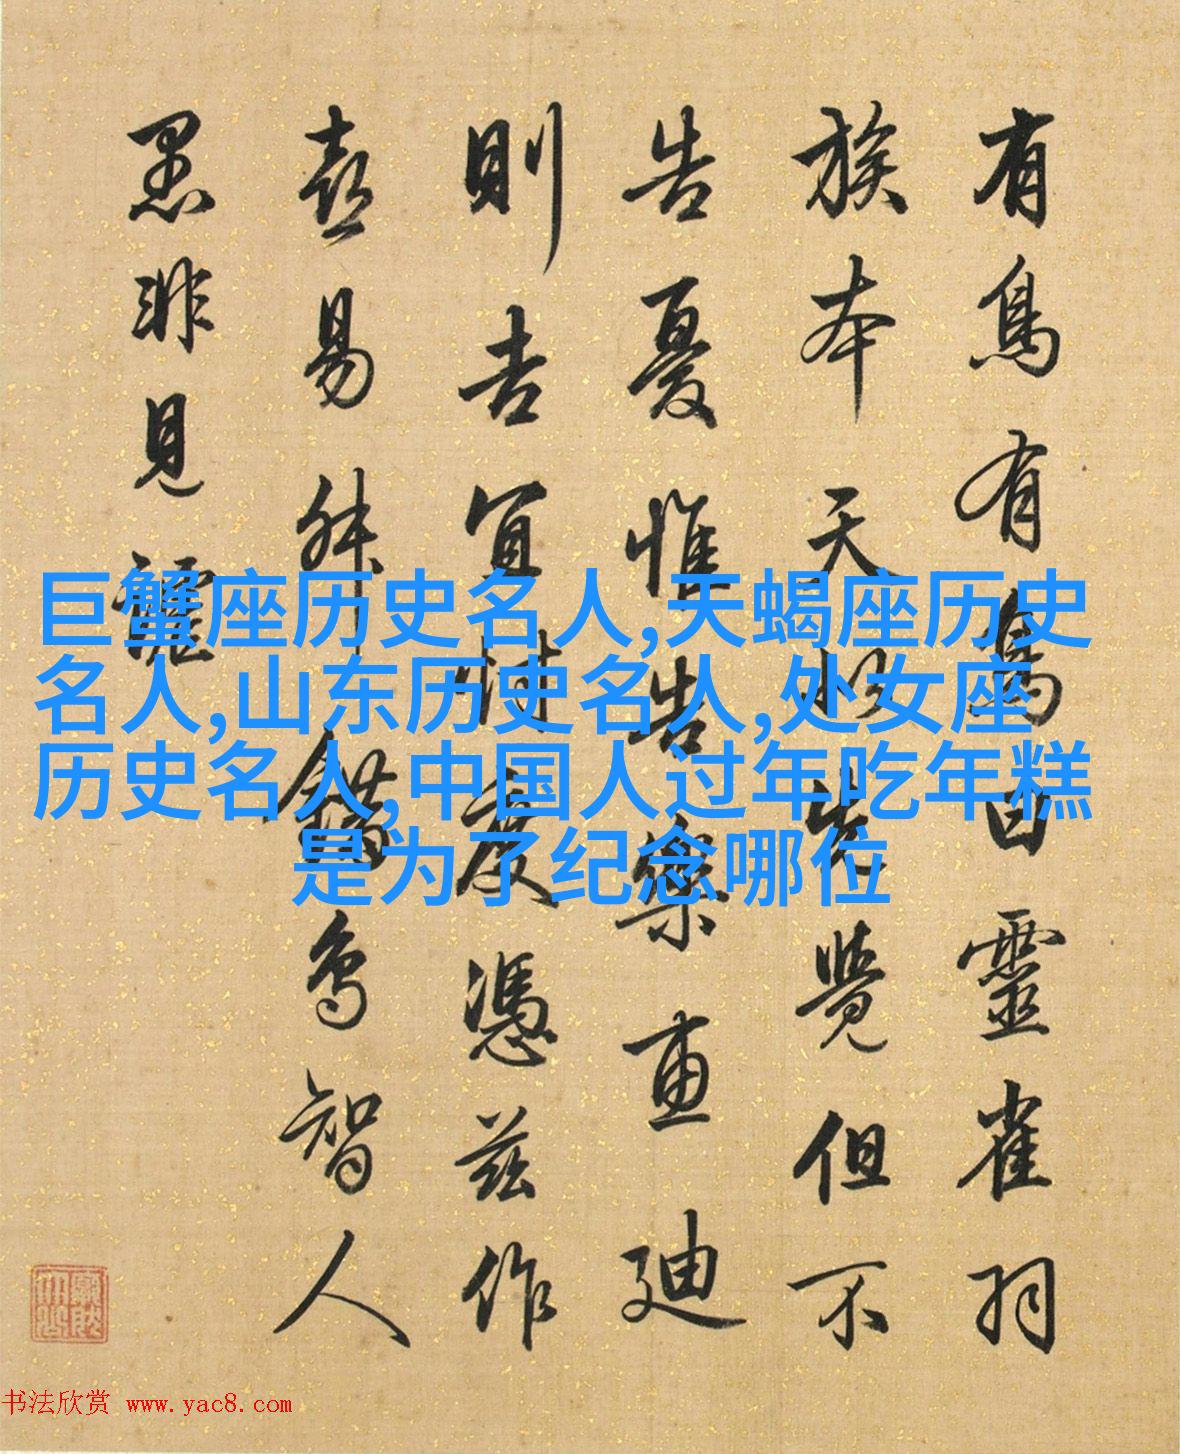 巨蟹座历史名人,天蝎座历史
名人,山东历史名人,处女座
历史名人,中国人过年吃年糕
是为了纪念哪位
有鳥有鳥曰靈雀羽
族本天似先覺但不
告憂惟告樂更迪
則吉宜忖度憑茲作
喜易舛錯鳥智人
愚非見
书法欣赏 www.yac8.com